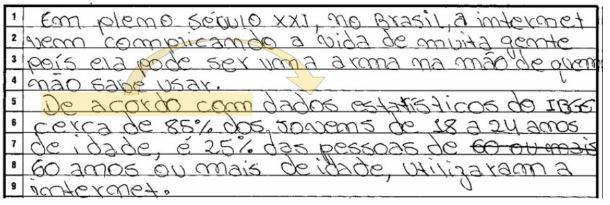 1 Em pleno século XXI, no Brasil, a internet
2 vem complicando a vida de muita gente
3 pois ela pode ser uma arma na mão de quem
4 não sabe usar.
5 De acordo com dados estatísticos do IBGE
6 cerca de 85% dos jovens de 18 a 24 anos
7 de idade, é 25% das pessoas de 60 ou mais
8 60 amos ou mais de idade, utilizaram a
9 internet.